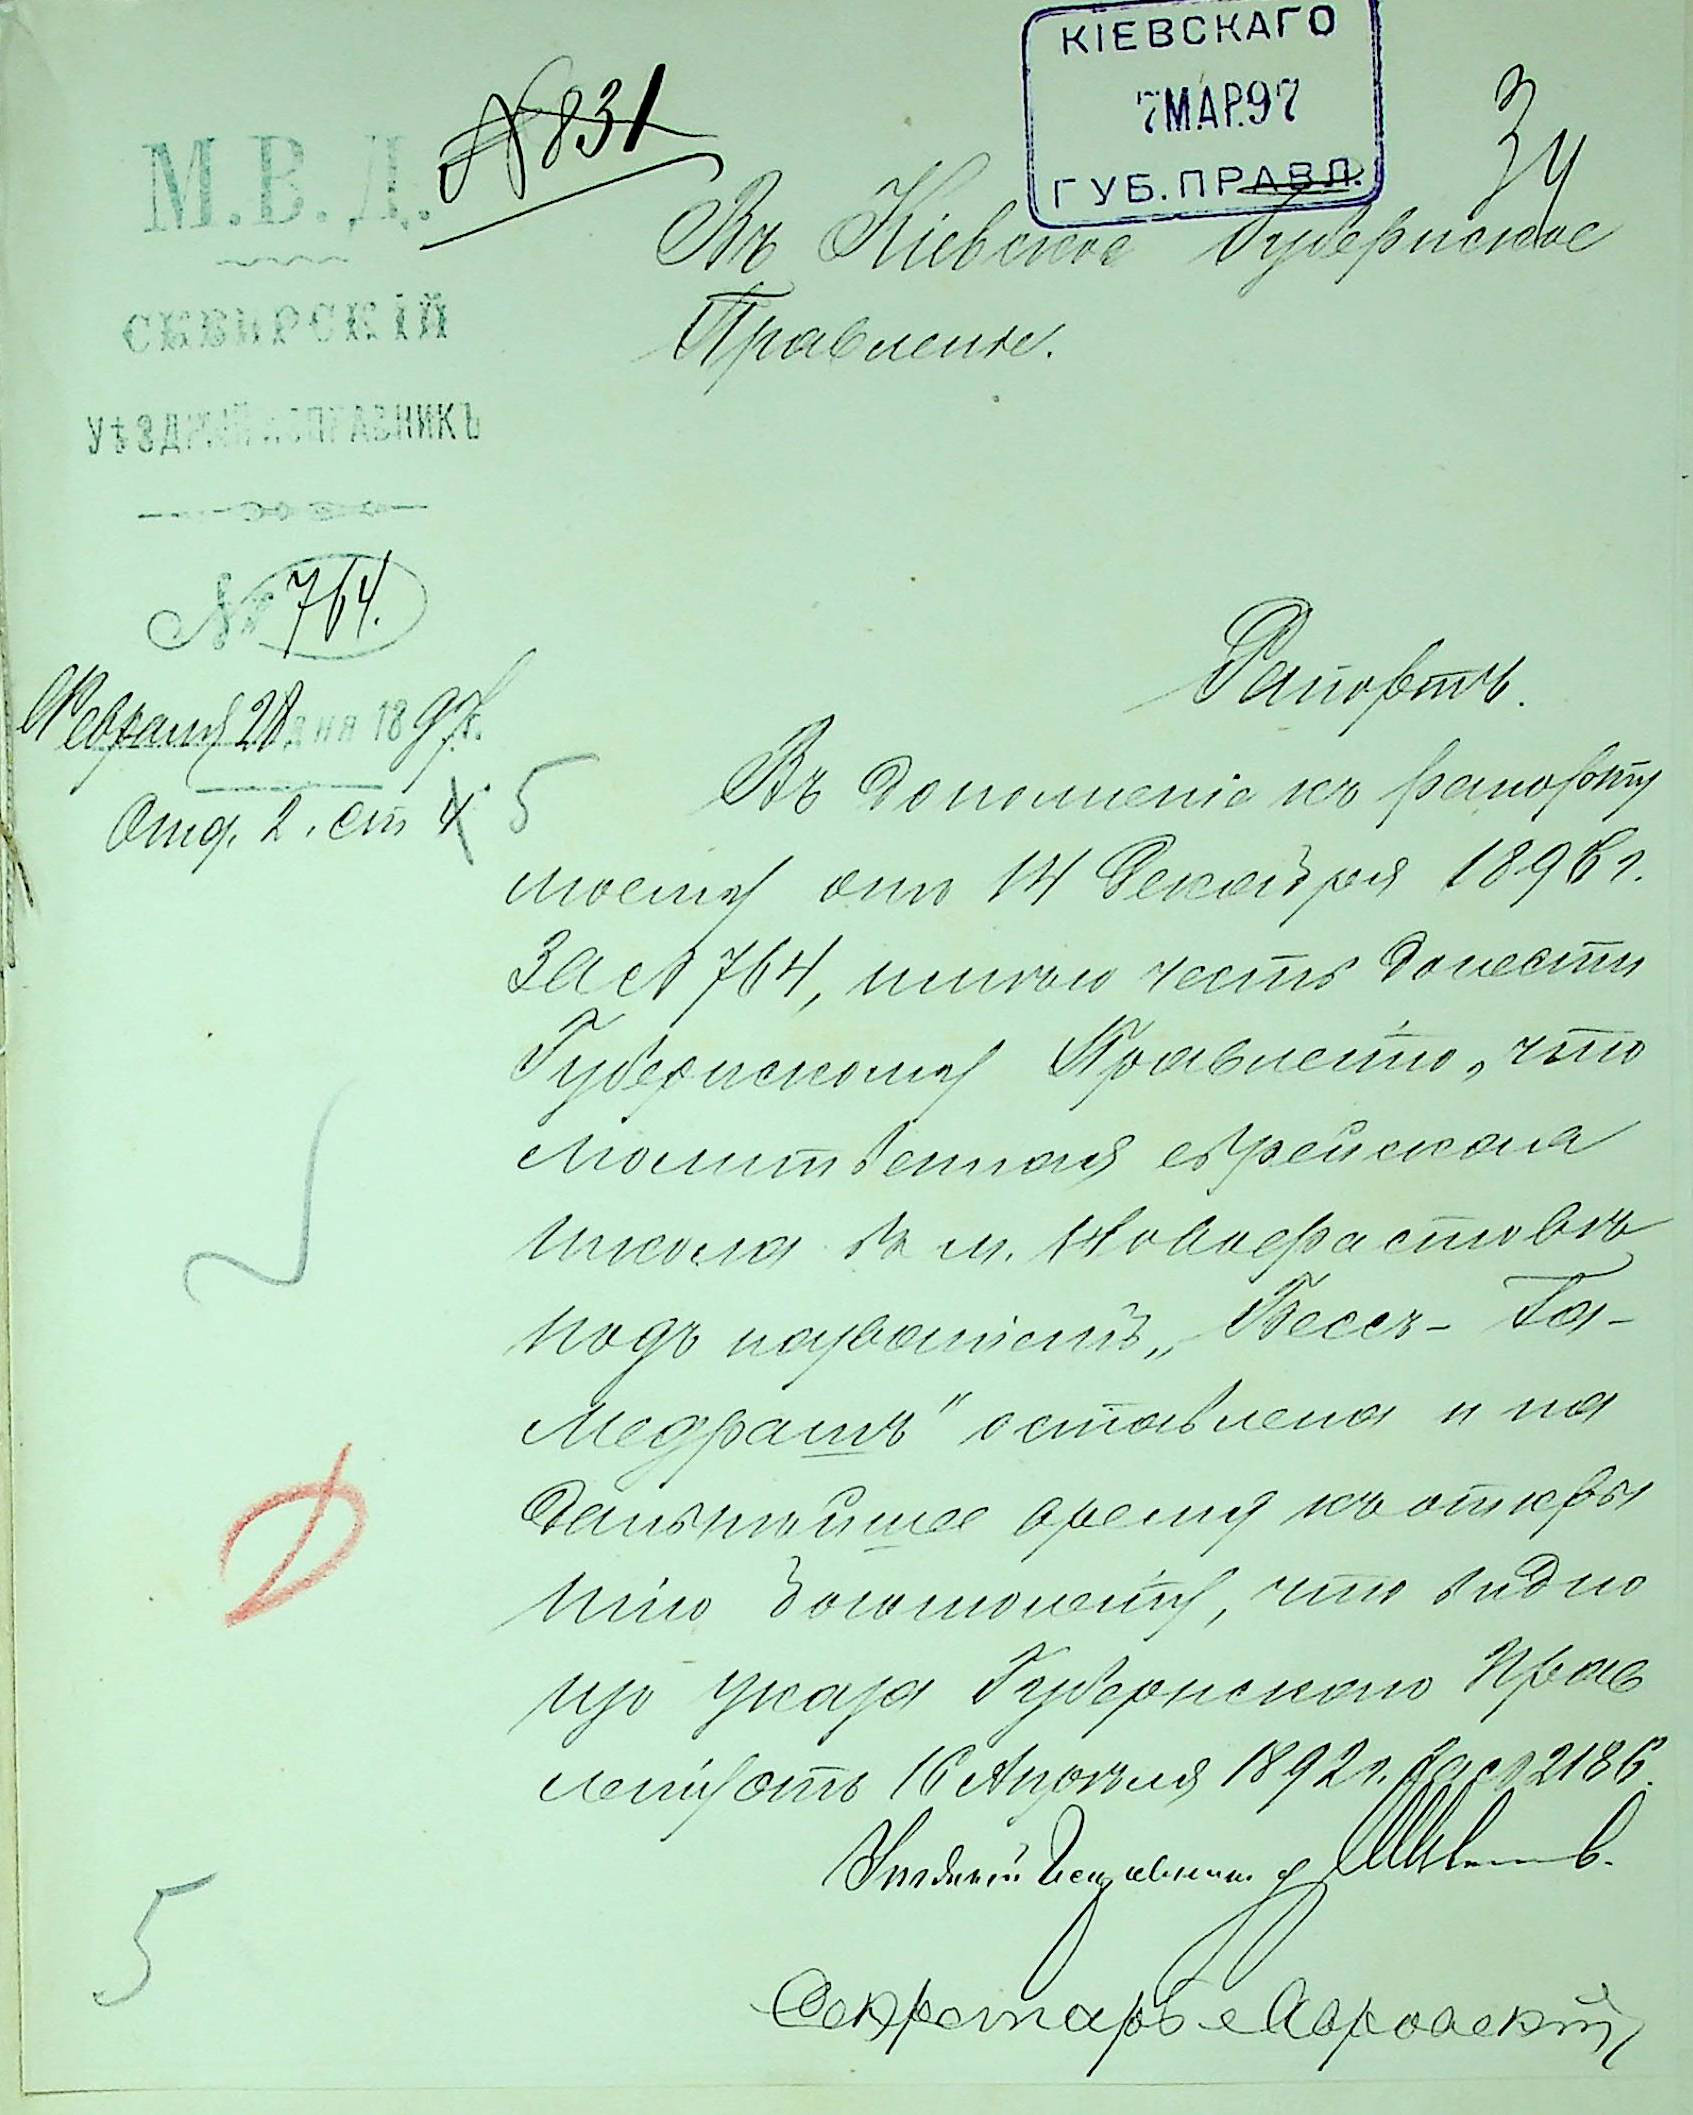 КІЕВСКАГО
7 МАР. 97
ГУБ. ПРАВЛ.
№ 831
34
М. В. Д.
СКВИРСКІЙ
УѢЗДНЫЙ ИСПРАВНИКЪ
№ 764.
Февраля 28 дня 1897 г.
Отд. 2. ст 4 5
Въ Кіевское Губернское
Правленіе.
Рапортъ.
Въ дополненіе къ рапорту
моему отъ 14 Декабря 1896 г.
За № 764, имѣю честь донести
Губернскому Правленію, что
молитвенная еврейская
школа въ м. Новофастовкѣ
подъ названіемъ „Бессъ-Га-
Медрашъ" оставлена и на
дальнѣйшее время къ откры
тію богомоленія, что видно
изъ указа Губернскаго Прав
ленія отъ 16 Апрѣля 1892 г. за № 2186.
Уѣздный Исправникъ
Секретарь
5